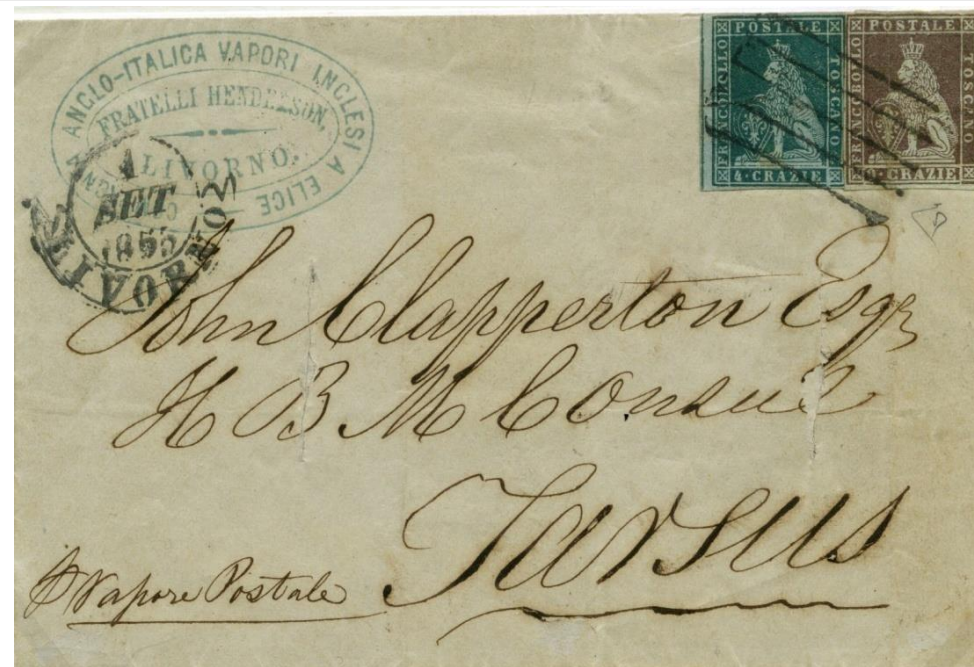 ANGLO-ITALICA VAPORI INGLESI A ELICE
FRATELLI HENDERSON,
LIVORNO.
1
SET
1855
LIVORNO
FRANCOBOLLO POSTALE TOSCANO
4 · CRAZIE
FRANCOBOLLO POSTALE TOSC
9 · CRAZIE
John Clapperton Esqr
H B M Consul
Tarsus
p Vapore Postale